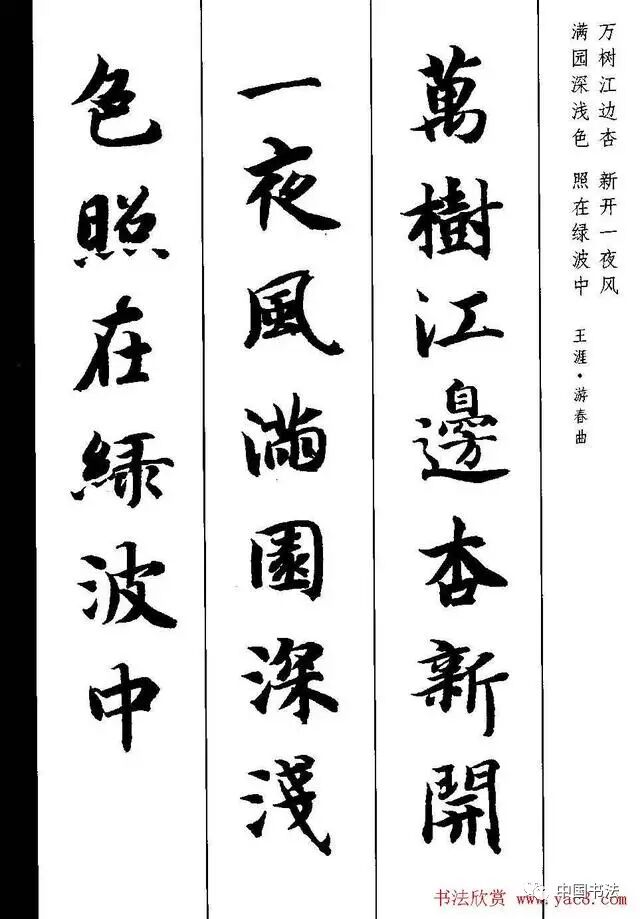 万树江边杏 新开一夜风
满园深浅色 照在绿波中
王涯·游春曲
萬樹江邊杏新開
一夜風滿園深淺
色照在綠波中
中国书法
书法欣赏 www.yac8.com